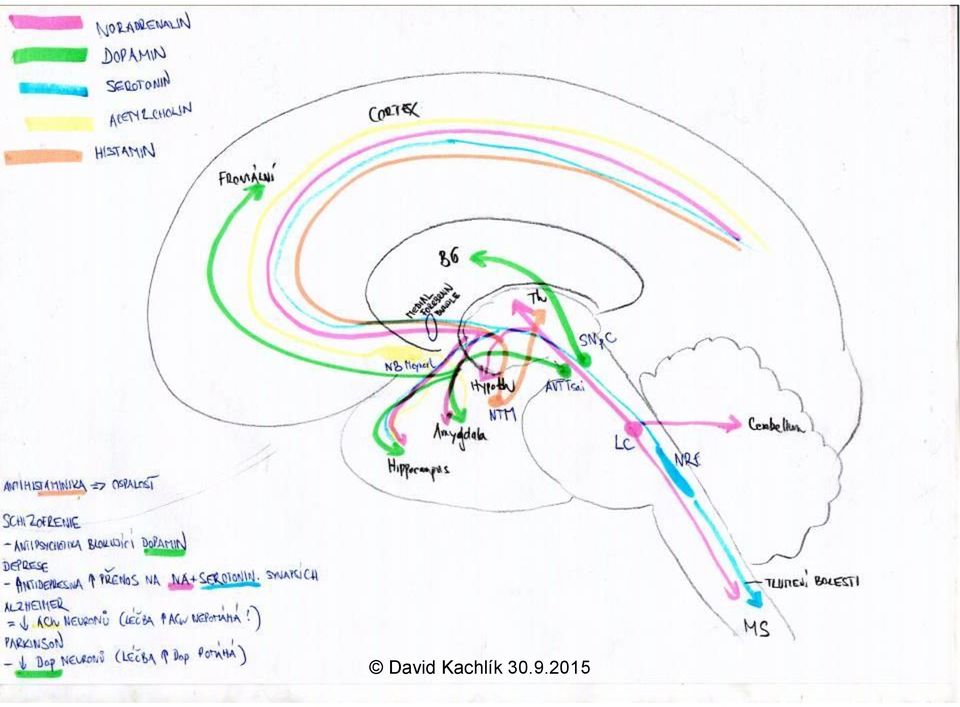 NORADRENALIN
DOPAMIN
SEROTONIN
ACETYLCHOLIN
HISTAMIN
CORTEX
FRONTÁLNÍ
BG
Th
MEDIAL
FOREBRAIN
BUNDLE
SNpC
NB Meynert
Hypoth
AVT Tsai
NTM
Amygdala
Hippocampus
LC
Cerebellum
NRS
ANTIHISTAMINIKA => OSPALOST
SCHIZOFRENIE
- ANTIPSYCHOTIKA BLOKUJÍCÍ DOPAMIN
DEPRESE
- ANTIDEPRESIVA ↑ PŘENOS NA NA+SEROTONIN. SYNAPSÍCH
ALZHEIMER
= ↓ ACH NEURONŮ (LÉČBA ↑ ACH NEPOMÁHÁ!)
PARKINSON
- ↓ DOP NEURONŮ (LÉČBA ↑ DOP POMÁHÁ)
TLUMENÍ BOLESTI
MS
© David Kachlík 30.9.2015